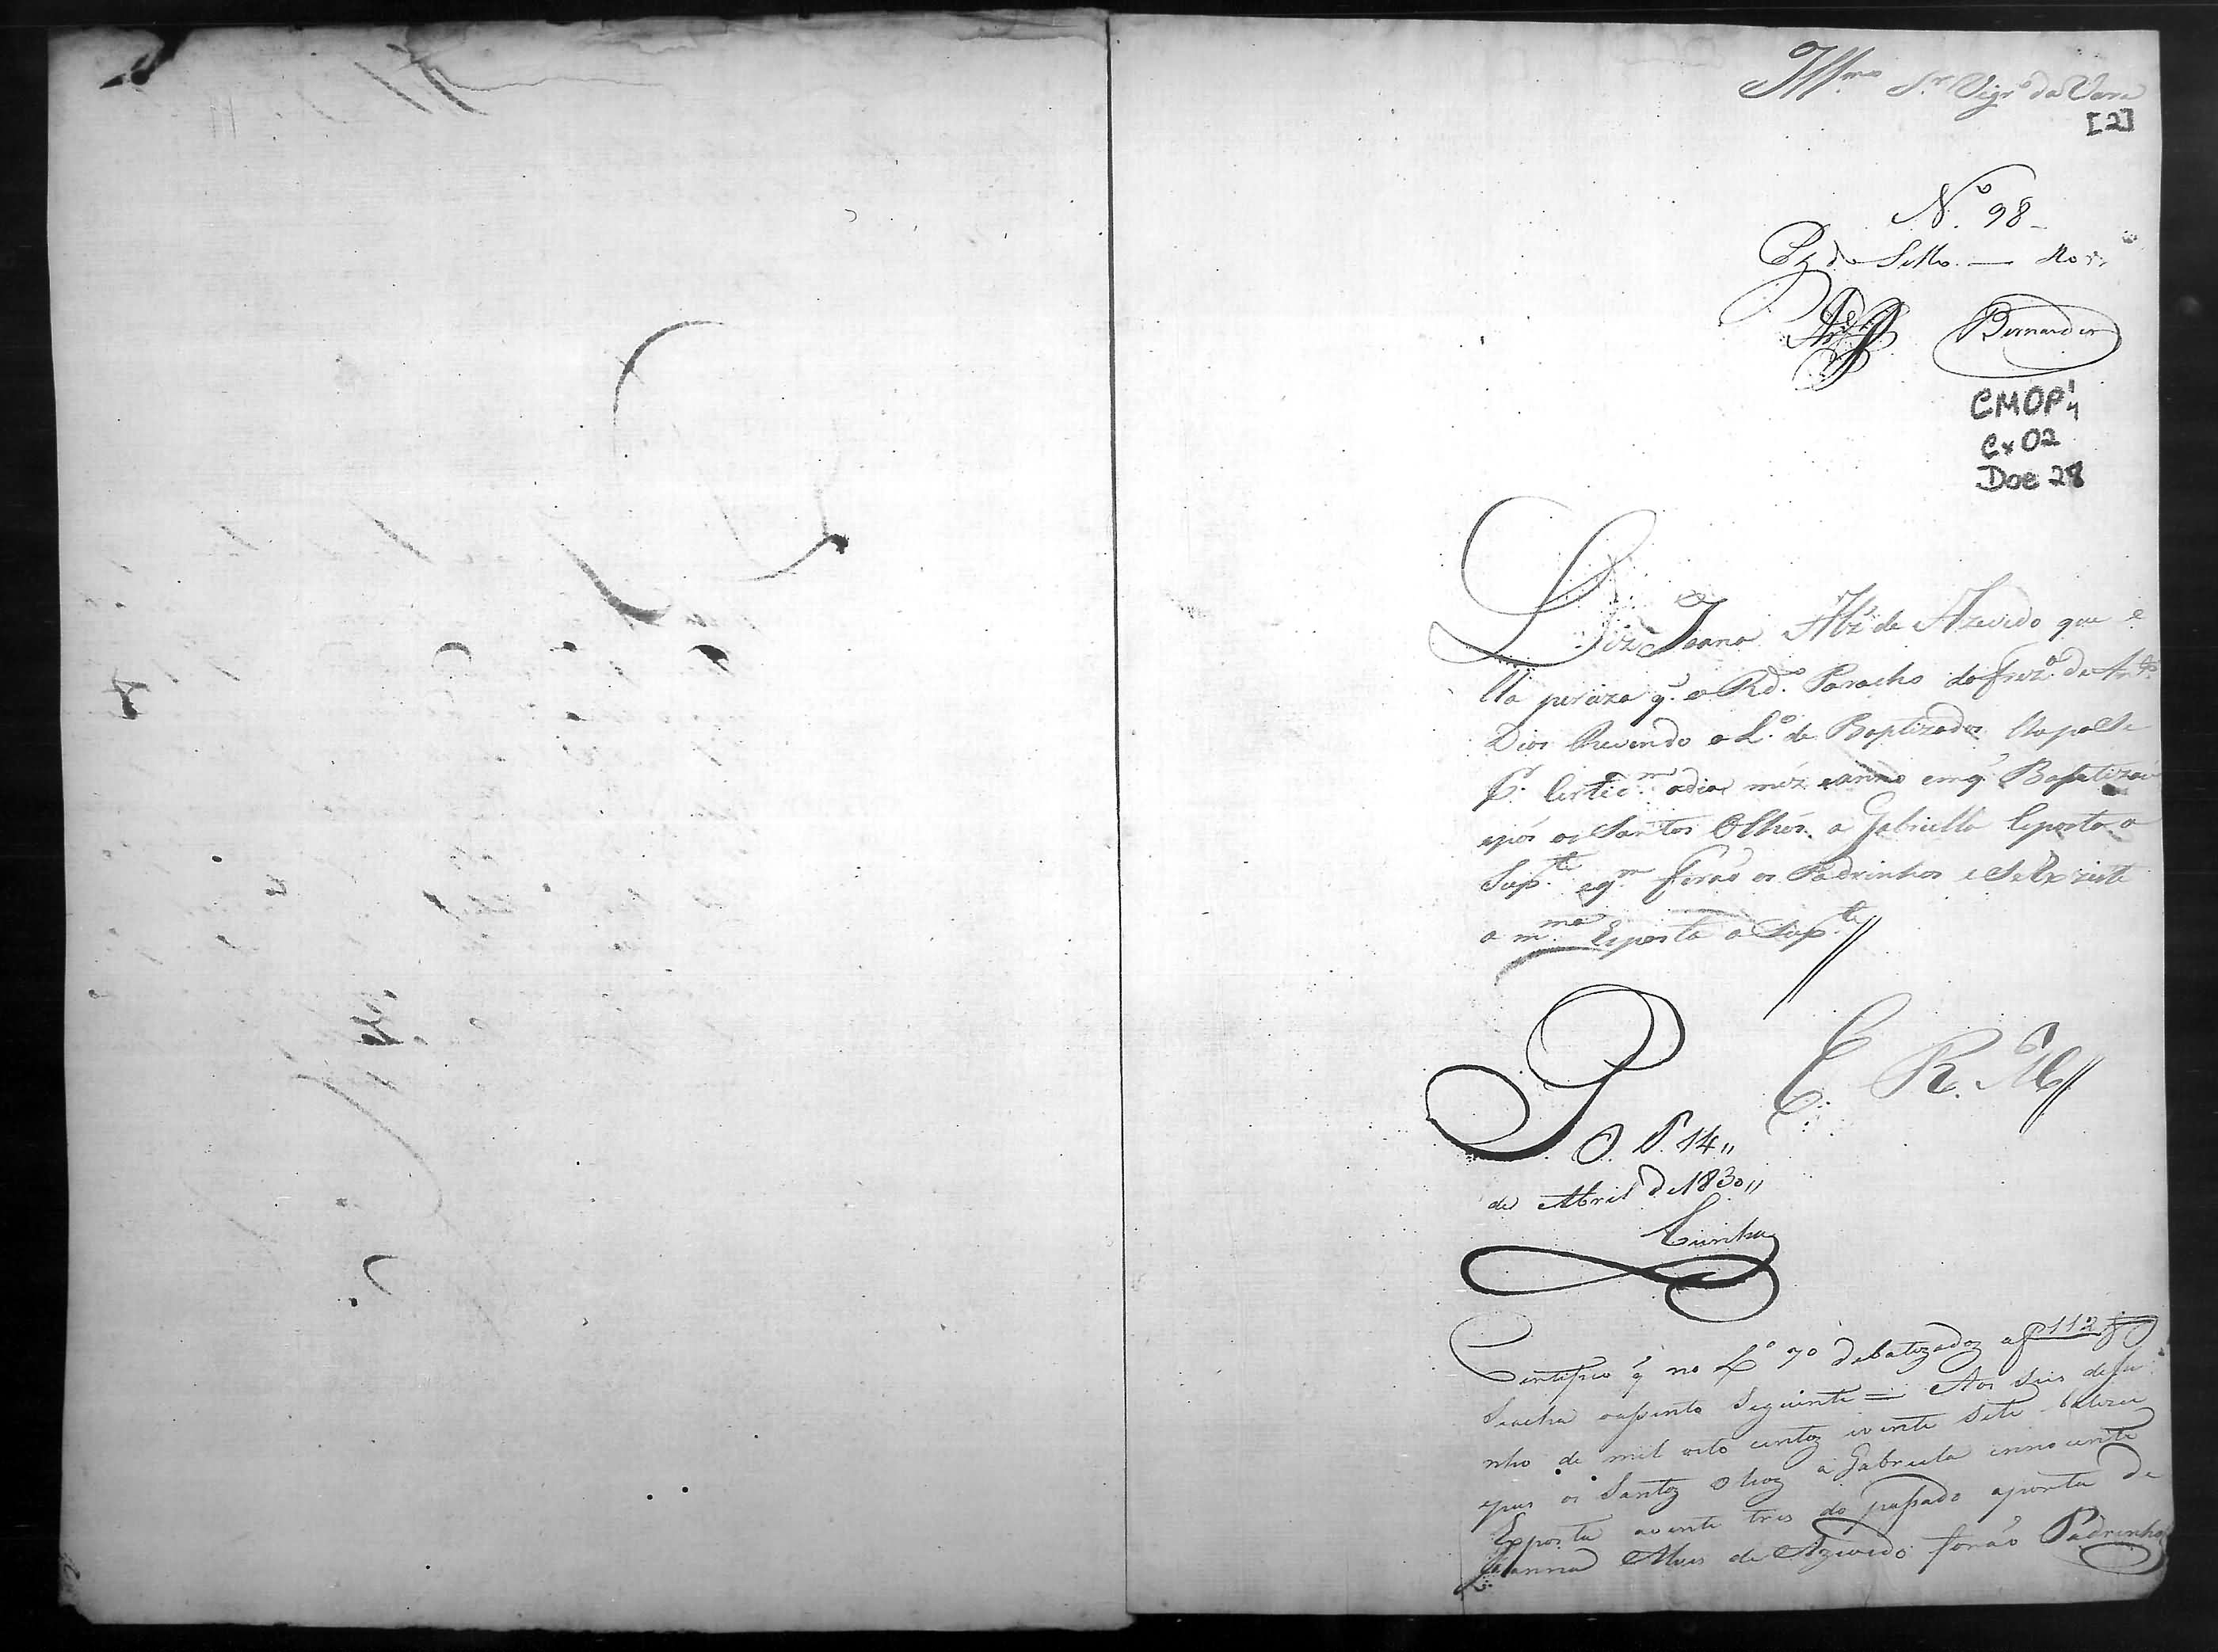 Illmo Sr. Vigro da Vara
[2]
No. 98
Pg de Sello
Bernardes
CMOP
Cx 02
Doc 28
Diz Joana Alz' de Azevedo que e
lla perciza q' o Rdo. Paracho da frezia. de Anto.
Dias Revendo o Lo. de Baptizados lhe passe
Pr. Certidm o dia mêz e anno em q' Baptizou
e pôs os Santos Olhos a Gabriella Exposta a
Supte. e qm forão os Padrinhos e se Exziste
a mma Exposta a Supte //
E. R. Mce //
P. O. P. 14 "
de Abril de 1830 "
Cunha
Certifico q' no Lo 7o de batizados a f 112
Se acha o assento Seguinte = Aos Seis de Ju
nho de mil oito centos e vinte Sete batizei
e pus os Santos Olhos a Gabriela innocente
Exposta a vinte tres do passado a porta de
Joanna Alves de Azevedo forão Padrinhos